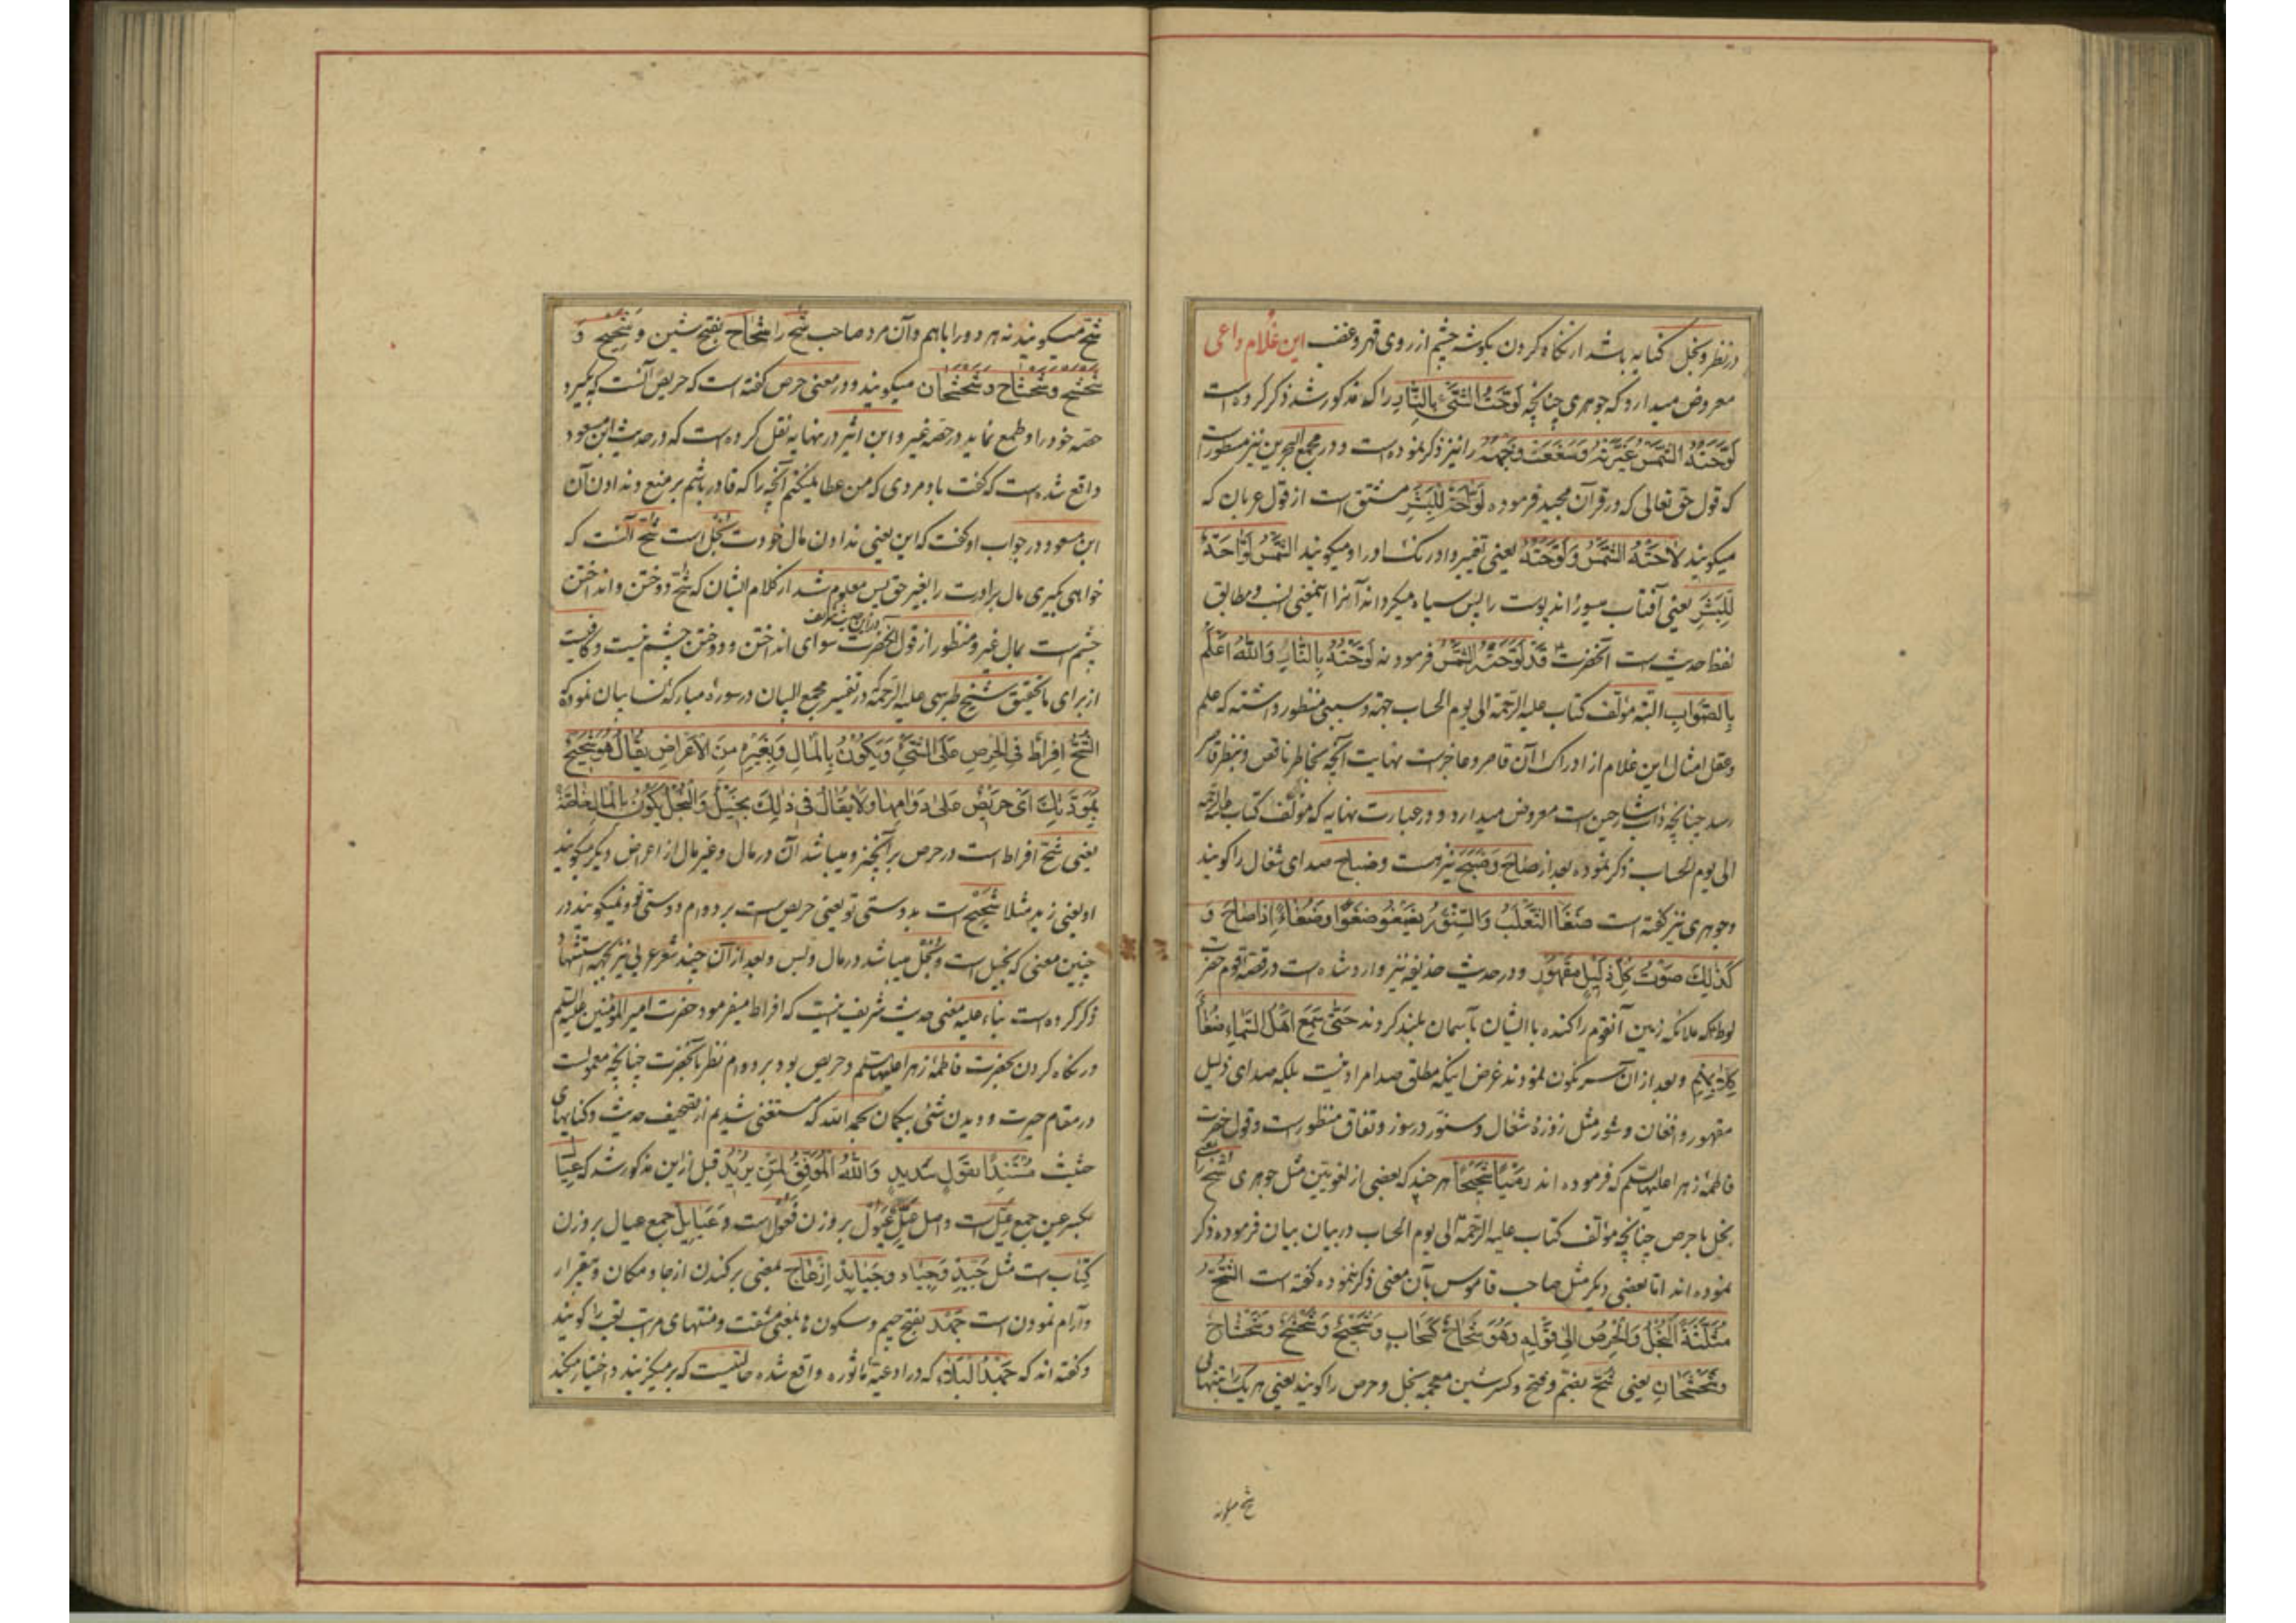 در نظر و بخل کنایه باشد از نگاه کردن بگوشه چشم از روی قهر و غضب این غلام داعی
معروض میدارد که جوهری چنانچه لَوَّحْتُ الشَّیْءَ بِالنَّارِ را که مذکور شد ذکر کرده است
لَوَّحَتْهُ الشَّمْسُ غَیَّرَتْهُ وَسَفَعَتْ وَجْهَهُ را نیز ذکر نموده است و در مجمع البحرین نیز مسطور است
که قول حق تعالی که در قرآن مجید فرموده لَوَّاحَةٌ لِلْبَشَرِ مشتق است از قول عربان که
میگویند لَاحَتْهُ الشَّمْسُ وَلَوَّحَتْهُ یعنی تغییر داد رنگ او را و میگویند الشَّمْسُ لَوَّاحَةٌ
لِلْبَشَرِ یعنی آفتاب میسوزاند پوست را پس سیاه میگرداند آنرا اینمعنی انسب و مطابق
لفظ حدیث است آنحضرت قَدْ لَوَّحَتْهُ الشَّمْسُ فرمود نه لَوَّحَتْهُ بِالنَّارِ وَاللهُ اَعْلَمُ
بِالصَّوَابِ البته مؤلف کتاب علیه الرحمة الی یوم الحساب جهة و سببی منظور داشته که علم
و عقل امثال این غلام از ادراک آن قاصر و عاجز است نهایت آنچه بخاطر ناقص و بنظر قاصر
رسد چنانچه داب شارحین است معروض میدارد و در عبارت نهایه که مؤلف کتاب علیه الرحمة
الی یوم الحساب ذکر نموده بعد از صَاحَ وَضَبَحَ نیز هست و ضباح صدای شغال را گویند
و جوهری نیز گفته است ضَغَا الثَّعْلَبُ وَالسِّنَّوْرُ یَضْغُو ضَغْوًا وَضُغَاءً اِذَا صَاحَ وَ
کَذٰلِکَ صَوْتُ کُلِّ ذَلِیلٍ مَقْهُورٍ و در حدیث حذیفه نیز وارد شده است در قصه قوم حضرت
لوط که ملائکه زمین آنقوم را کنده با ایشان بآسمان بلند کردند حَتّٰی سَمِعَ اَهْلُ السَّمَاءِ ضُغَاءَ
کِلَابِهِمْ و بعد از آن سرنگون نمودند غرض اینکه مطلق صدا مراد نیست بلکه صدای ذلیل
مقهور و افغان و شور مثل زوزهٔ شغال و سنور در سوز و نفاق منظور است و قول حضرت
فاطمهٔ زهرا علیها سلم که فرموده اند رَمْیًا شَحِیحًا هر چند که بعضی از لغویین مثل جوهری شح را بمعنی
بخل با حرص چنانچه مؤلف کتاب علیه الرحمة الی یوم الحساب در بیان بیان فرموده ذکر
نموده اند اما بعضی دیگر مثل صاحب قاموس بآن معنی ذکر ننموده گفته است الشُّحُّ
مُثَلَّثَةً اَلْبُخْلُ وَالْحِرْصُ اِلٰی قَوْلِهِ وَهُوَ شَحَاحٌ کَسَحَابٍ وَشَحِیحٌ وَشَحْشَحٌ وَشَحْشَاحٌ
وَشَحْشَحَانٌ یعنی شح بضم و فتح و کسر شین معجمه بخل و حرص را گویند یعنی هر یک را بتنهائی
شح میگوند
شح میگویند نه هر دو را با هم و آن مرد صاحب شح را شَحَاح بفتح شین و شَحِیح و
شَحْشَح و شَحْشَاح و شَحْشَحَان میگویند و در معنی حرص گفته است که حریص آنست که بگیرد
حصه خود را و طمع نماید در حصه غیر و ابن اثیر در نهایه نقل کرده است که در حدیث ابن مسعود
واقع شده است که گفت باو مردی که من عطا نمیکنم آنچه را که قادر باشم بر منع و ندادن آن
ابن مسعود در جواب او گفت که این یعنی ندادن مال خودت بخل است شح آنست که
خواهی بگیری مال برادرت را بغیر حق پس معلوم شد از کلام ایشان که شح دوختن و انداختن
چشم است بمال غیر و منظور از قول آنحضرت سوای انداختن و دوختن چشم نیست و کافیست
از برای ما تحقیق شیخ طبرسی علیه الرحمة که در تفسیر مجمع البیان در سوره مبارکه نسا بیان نموده که
الشُّحُّ اِفْرَاطٌ فِی الْحِرْصِ عَلَی الشَّیْءِ وَیَکُونُ بِالْمَالِ وَبِغَیْرِهِ مِنَ الْاَعْرَاضِ یُقَالُ هُوَ شَحِیحٌ
بِمَوَدَّتِکَ اَیْ حَرِیصٌ عَلٰی دَوَامِهَا وَلَا یُقَالُ فِی ذٰلِکَ بَخِیلٌ وَالْبُخْلُ یَکُونُ بِالْمَالِ خَاصَّةً
یعنی شح افراط است در حرص بر آنچیز و میباشد آن در مال و غیر مال از اعراض دیگر میگویند
او یعنی زید مثلا شحیح است بدوستی تو یعنی حریص است بر دوام دوستی تو و نمیگویند در
چنین معنی که بخیل است و بخل میباشد در مال و بس و بعد از آن چند شعر عربی نیز بجهة استشهاد
ذکر کرده است بناء علیه معنی حدیث شریف نیست که افراط میفرمود حضرت امیر المؤمنین علیه السلم
در نگاه کردن بحضرت فاطمهٔ زهرا علیها سلم و حریص بود بر دوام نظر بآنحضرت چنانچه معمولست
در مقام حیرت و دیدن شئی بیگمان بحمد الله که مستغنی شدیم از تصحیف حدیث و کنایهای
خبیث مُسْتَنِدًا بِقَوْلٍ سَدِیدٍ وَاللهُ الْمُوَفِّقُ لِمَنْ یُرِیدُ قبل از این مذکور شد که عِیَال
بکسر عین جمع عَیِّل است و اصل عَیِّل عَیْوِل بر وزن فَعْوِل است و عَیَایِل جمع عیال بر وزن
کِتَاب است مثل جَیِّد و جِیَاد و جَیَایِد اِزْعَاج بمعنی بر کندن از جا و مکان و بیقرار
و آرام نمودن است جَهْد بفتح جیم و سکون ها بمعنی مشقت و منتهای مراتب تعب را گویند
و گفته اند که جَهْدُ الْبَلَاءِ که در ادعیهٔ ماثوره واقع شده حالتیست که بر میگزینند و اختیار میکند